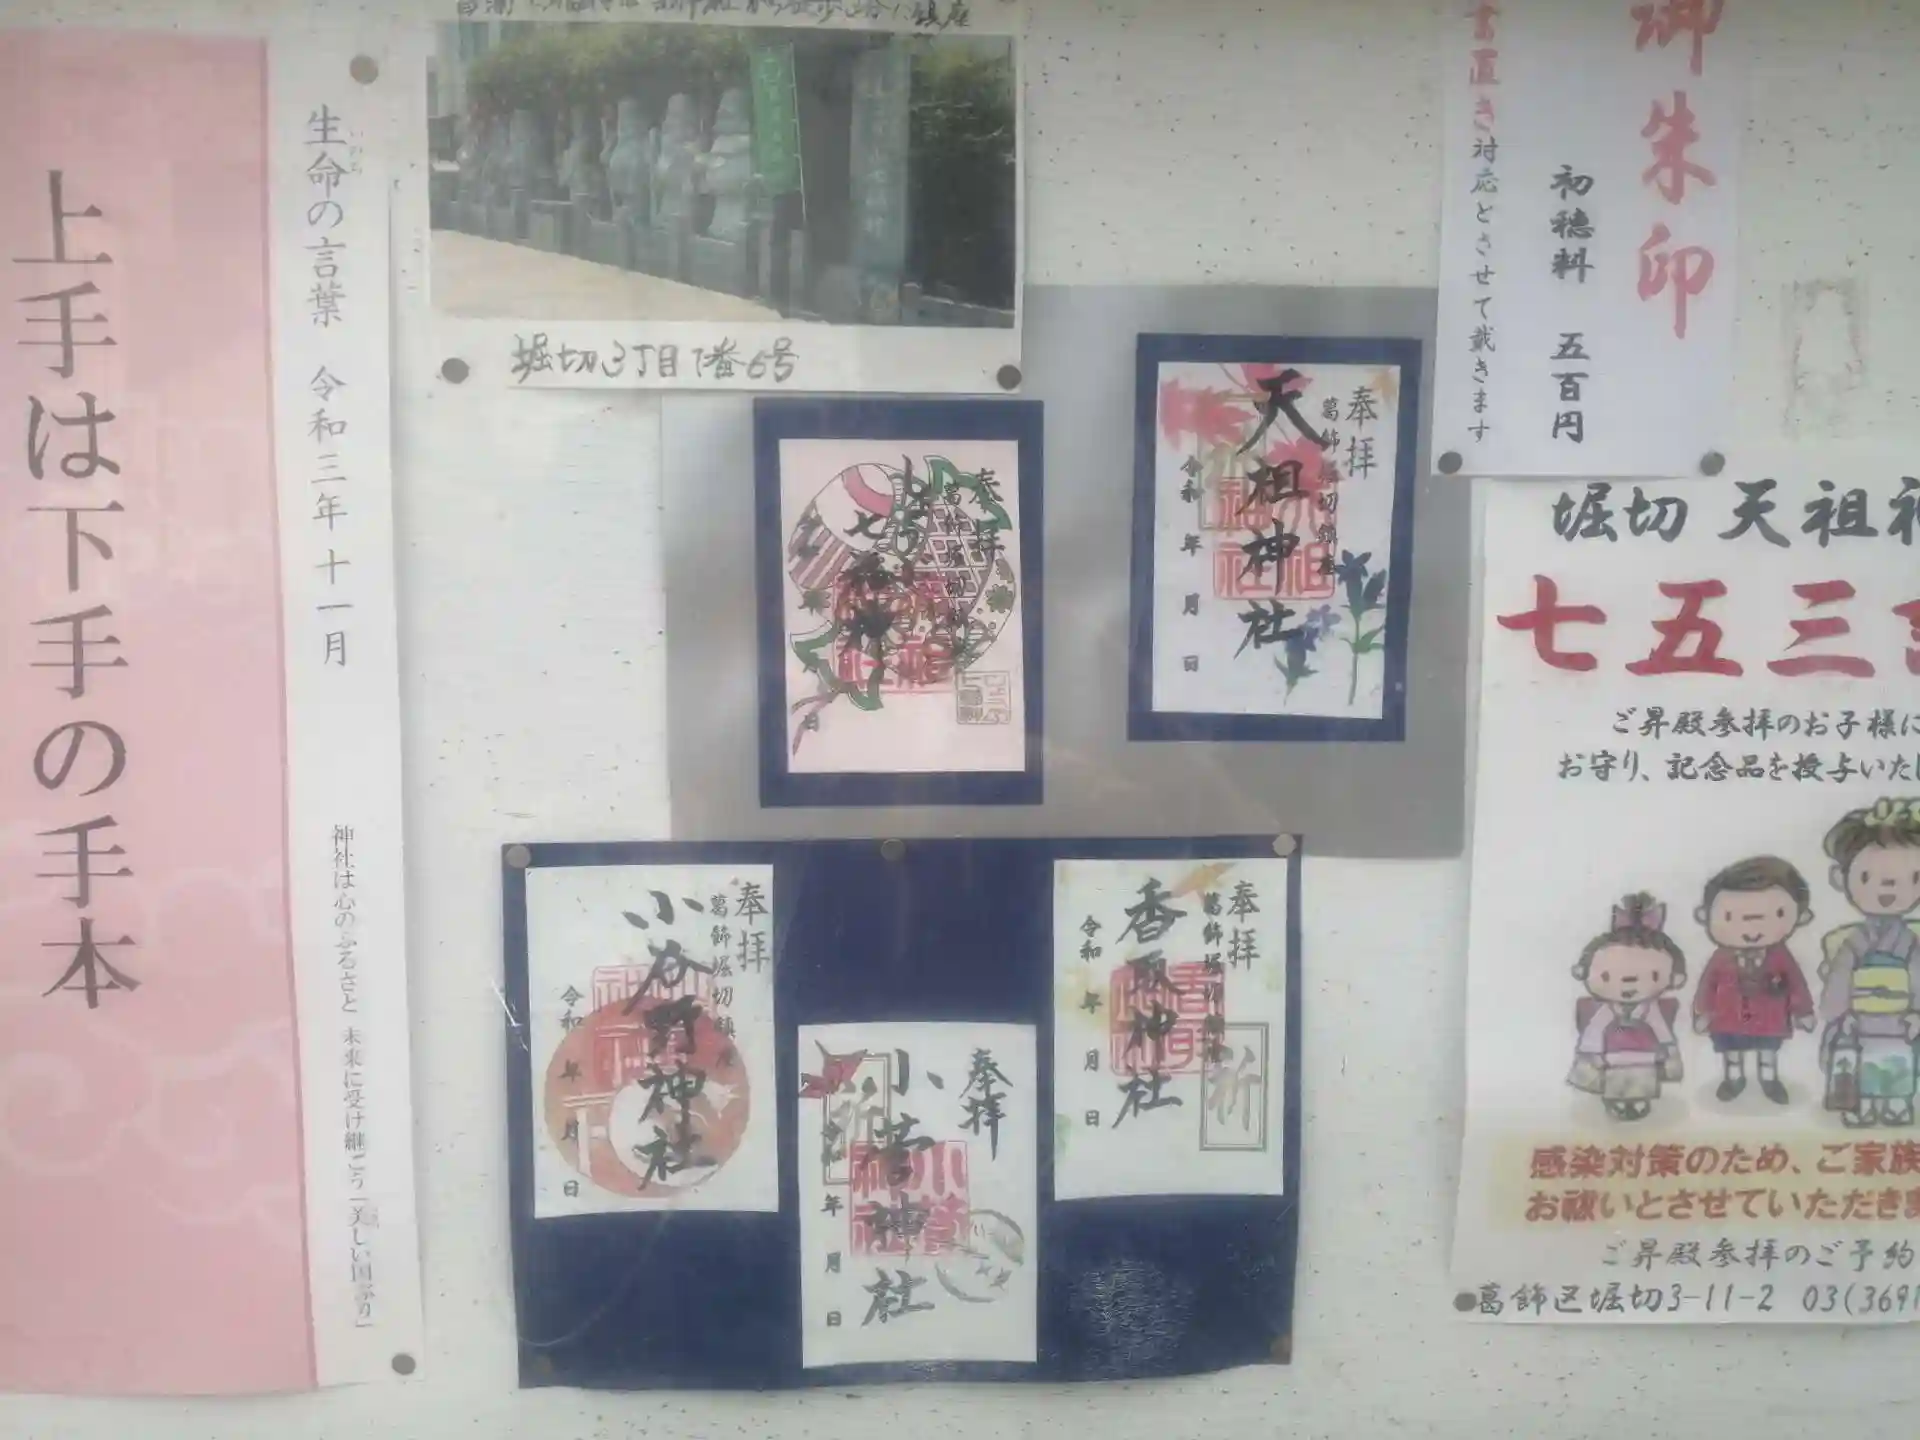 上手は下手の手本
生命の言葉　令和三年十一月
いのち
神社は心のふるさと　未来に受け継ごう「美しい国ぶり」
鎮座
堀切3丁目7番6号
御朱印
初穂料　五百円
書置き対応とさせて戴きます
奉拝
葛飾堀切鎮座
天祖神社
令和　年　月　日
奉拝
葛飾堀切
七福神
日
奉拝
葛飾堀切鎮座
小谷野神社
令和　年　月　日
奉拝
小菅神社
祈
年　月　日
奉拝
葛飾堀切鎮座
香取神社
祈
令和　年　月　日
堀切 天祖
七五三
ご昇殿参拝のお子様に
お守り、記念品を授与いた
感染対策のため、ご家族
お祓いとさせていただきま
ご昇殿参拝のご予約
葛飾区堀切3-11-2　03(3691